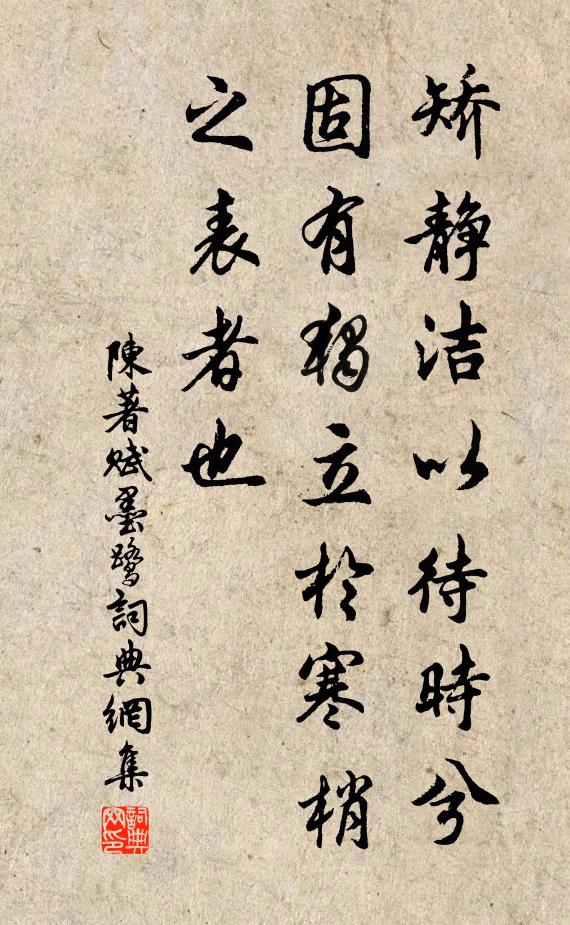 矫静洁以待時兮
固有獨立於寒梢
之表者也
陳著賦墨鷺詞典網集
詞典网印